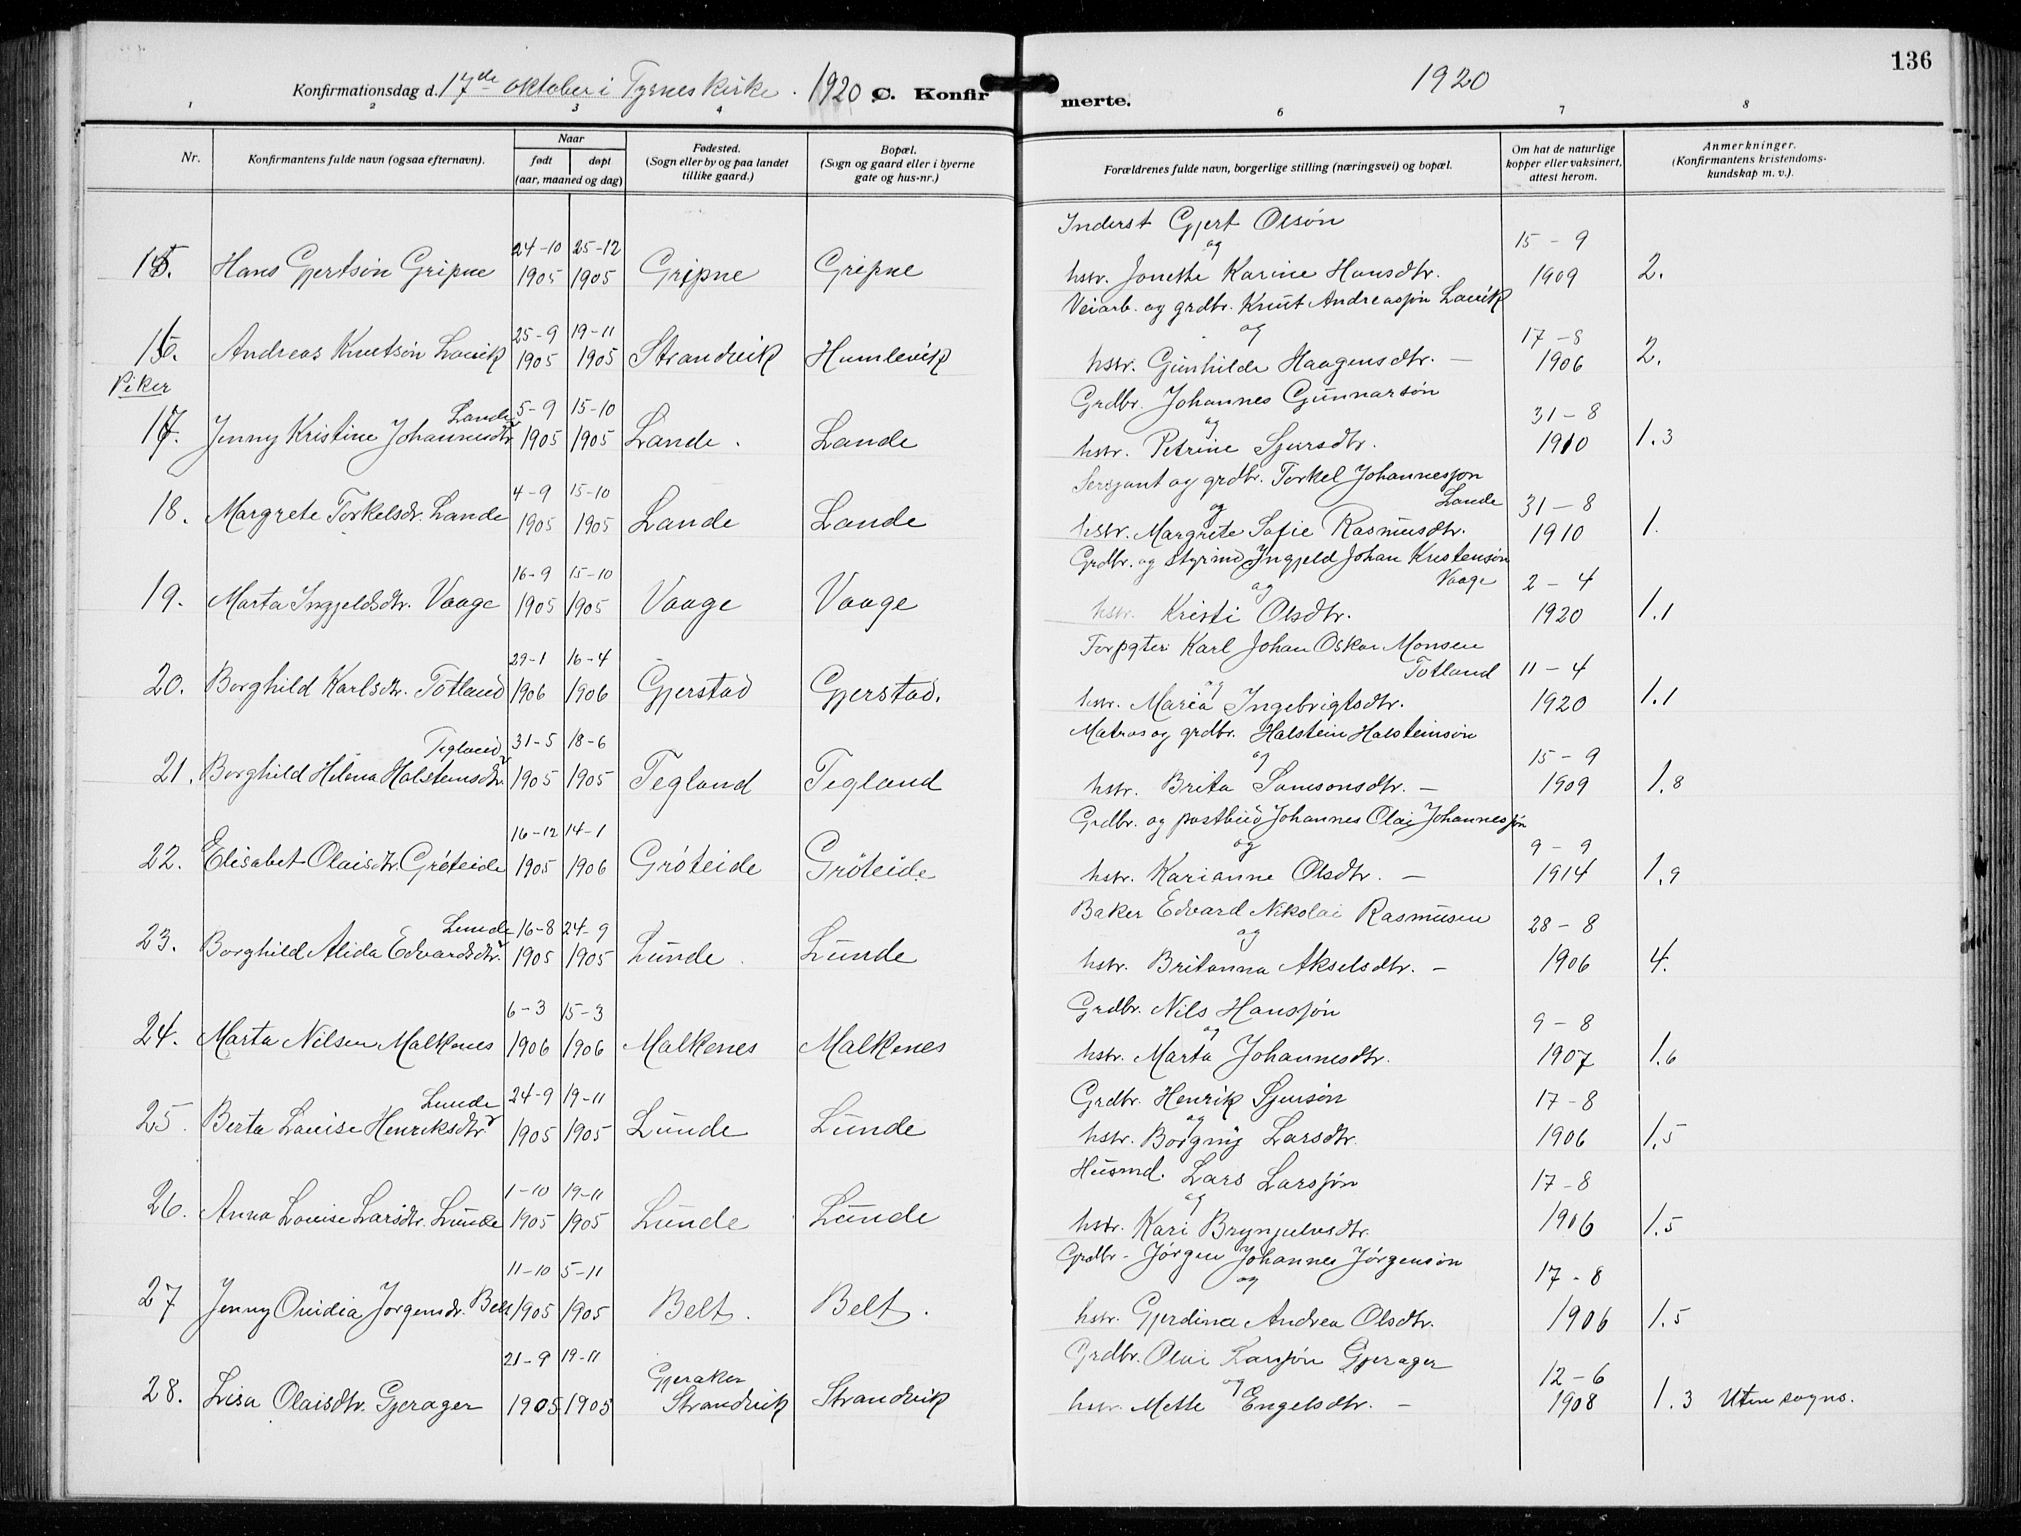 136
Konfirmationsdag d. 17de oktober i Tysnes kirke. 1920 C. Konfirmerte. 1920
1 2 3 4 6 7 8
Nr.
Konfirmantens fulde navn (ogsaa efternavn).
Naar
født døpt
(aar, maaned og dag)
Fødested.
(Sogn eller by og paa landet
tillike gaard.)
Bopæl.
(Sogn og gaard eller i byerne
gate og hus-nr.)
Forældrenes fulde navn, borgerlige stilling (næringsvei) og bopæl.
Om hat de naturlige
kopper eller vaksinert,
attest herom.
Anmerkninger.
(Konfirmantens kristendoms-
kundskap m. v.).
Inderst Gjert Olsøn
24-10 25-12 og 15 - 9
15. Hans Gjertsøn Gripne 1905 1905 Gripne Gripne hstr. Jonette Karine Hansdtr. 1909 2.
Veiarb. og grdbr. Knut Andreassøn Lavik
25-9 19-11 og 17 - 8
16. Andreas Knutsøn Lavik 1905 1905 Strandvik Humlevik hstr. Gunhilde Haagensdtr. — 1906 2.
Piker
Grdbr. Johannes Gunnarsøn
Lande 5-9 15-10 og 31 - 8
17. Jenny Kristine Johannesdtr 1905 1905 Lande. Lande hstr. Petrine Sjursdtr. 1910 1.3
Sersjant og grdbr. Torkel Johannessøn
4-9 15-10 Lande og 31 - 8
18. Margrete Torkelsdr. Lande 1905 1905 Lande Lande hstr. Margrete Sofie Rasmusdtr. 1910 1.
Grdbr. og styrmd. Ingjeld Johan Kristensøn
16-9 15-10 Vaage og 2 - 4
19. Marta Ingjeldsdtr. Vaage 1905 1905 Vaage Vaage hstr. Kristi Olsdtr. 1920 1.1
Forpgter Karl Johan Oskar Monsen
29-1 16-4 Totland og 11 - 4
20. Borghild Karlsdtr. Totland 1906 1906 Gjerstad Gjerstad. hstr. Maria Ingebrigtsdtr. 1920 1.1
Matros og grdbr. Halstein Halsteinsøn
Tegland 31-5 18-6 og 15 - 9
21. Borghild Helena Halsteinsdtr 1905 1905 Tegland Tegland hstr. Brita Samsonsdtr. — 1909 1.8
Grdbr. og postbud Johannes Olai Johannessøn
16-12 14-1 og 9 - 9
22. Elisabet Olaisdtr. Gröteide 1905 1906 Gröteide Gröteide hstr. Karianne Olsdtr. — 1914 1.9
Baker Edvard Nikolai Rasmusen
Lunde 16-8 24-9 og 28 - 8
23. Borghild Alida Edvardsdtr. 1905 1905 Lunde. Lunde hstr. Britanna Akselsdtr. — 1906 4.
Grdbr. Nils Hanssøn
6-3 15-3 og 9 - 8
24. Marta Nilsen Malkenes 1906 1906 Malkenes Malkenes hstr. Marta Johannesdtr. 1907 1.6
Grdbr. Henrik Sjursøn
Lunde 24-9 19-11 og 17 - 8
25. Berta Louise Henriksdtr 1905 1905 Lunde Lunde hstr. Borgny Larsdtr. 1906 1.5
Husmd. Lars Larssøn
1-10 19-11 og 17 - 8
26. Anna Louise Larsdtr. Lunde 1905 1905 Lunde Lunde hstr. Kari Brynjulvsdtr. 1906 1.5
Grdbr - Jørgen Johannes Jörgensøn
11-10 5-11 og 17 - 8
27 Jenny Ovidia Jørgensdr. Belt 1905 1905 Belt. Belt. hstr. Gjerdina Andrea Olsdtr. 1906 1.5
Grdbr. Olai Larssøn Gjerager
21-9 19-11 Gjeraker og 12 - 6
28. Lisa Olaisdtr. Gjerager 1905 1905 Strandvik Strandvik hstr. Mette Engelsdtr. — 1908 1.3 Uten sogns.